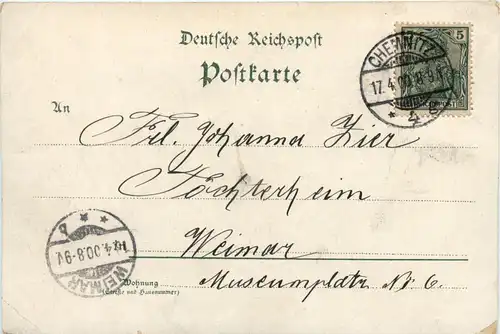 Deutsche Reichspost
Postkarte
5
CHEMNITZ
17.4.00.8-9V.
* 4
An
Frl. Johanna Zier
Töchterheim
Weimar
Museumplatz No 6.
Wohnung
(Straße und Hausnummer)
4.00.8-9V.
WEIMAR